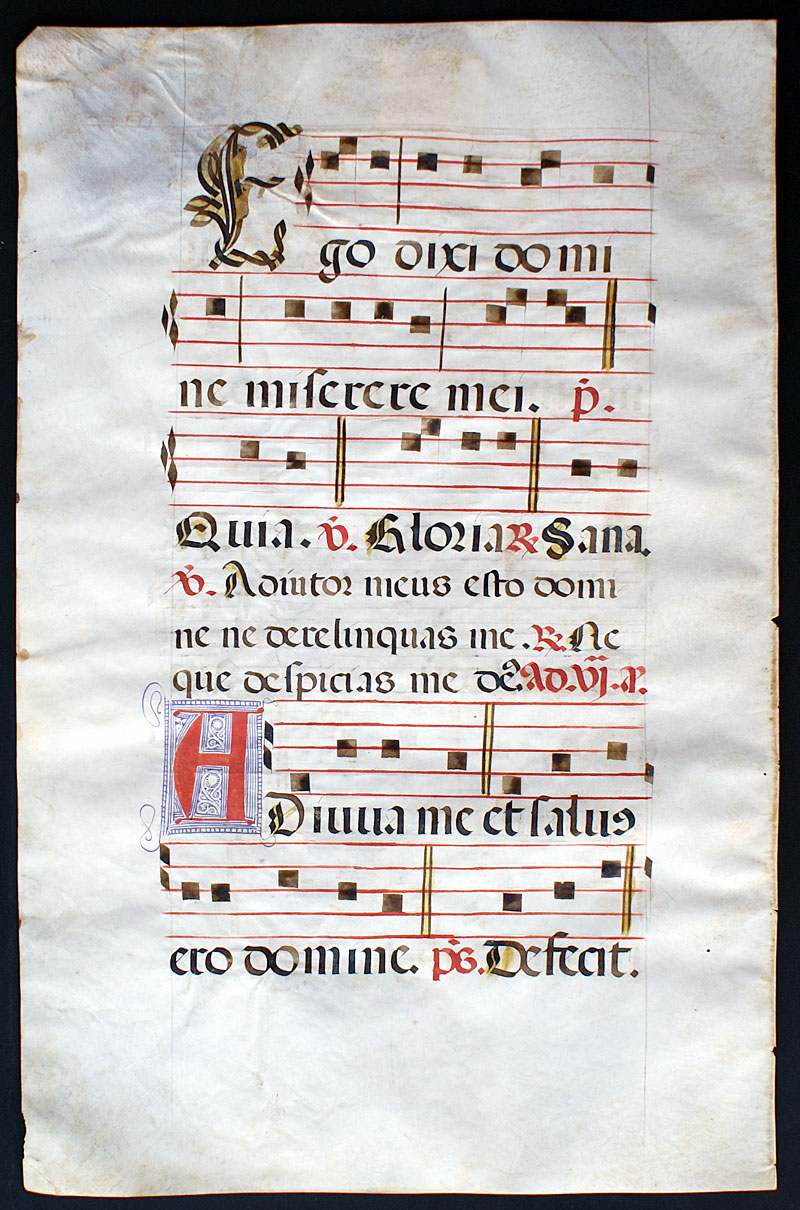 Ego dixi domi
ne miserere mei. p̄.
Quia. ℣. Gloria ℟ Sana.
℣. Adiutor meus esto domi
ne ne derelinquas me. ℟. Ne
que despicias me deꝰ. Ad. vj. p.
Adiuua me et saluꝰ
ero domine. ps. Defecit.